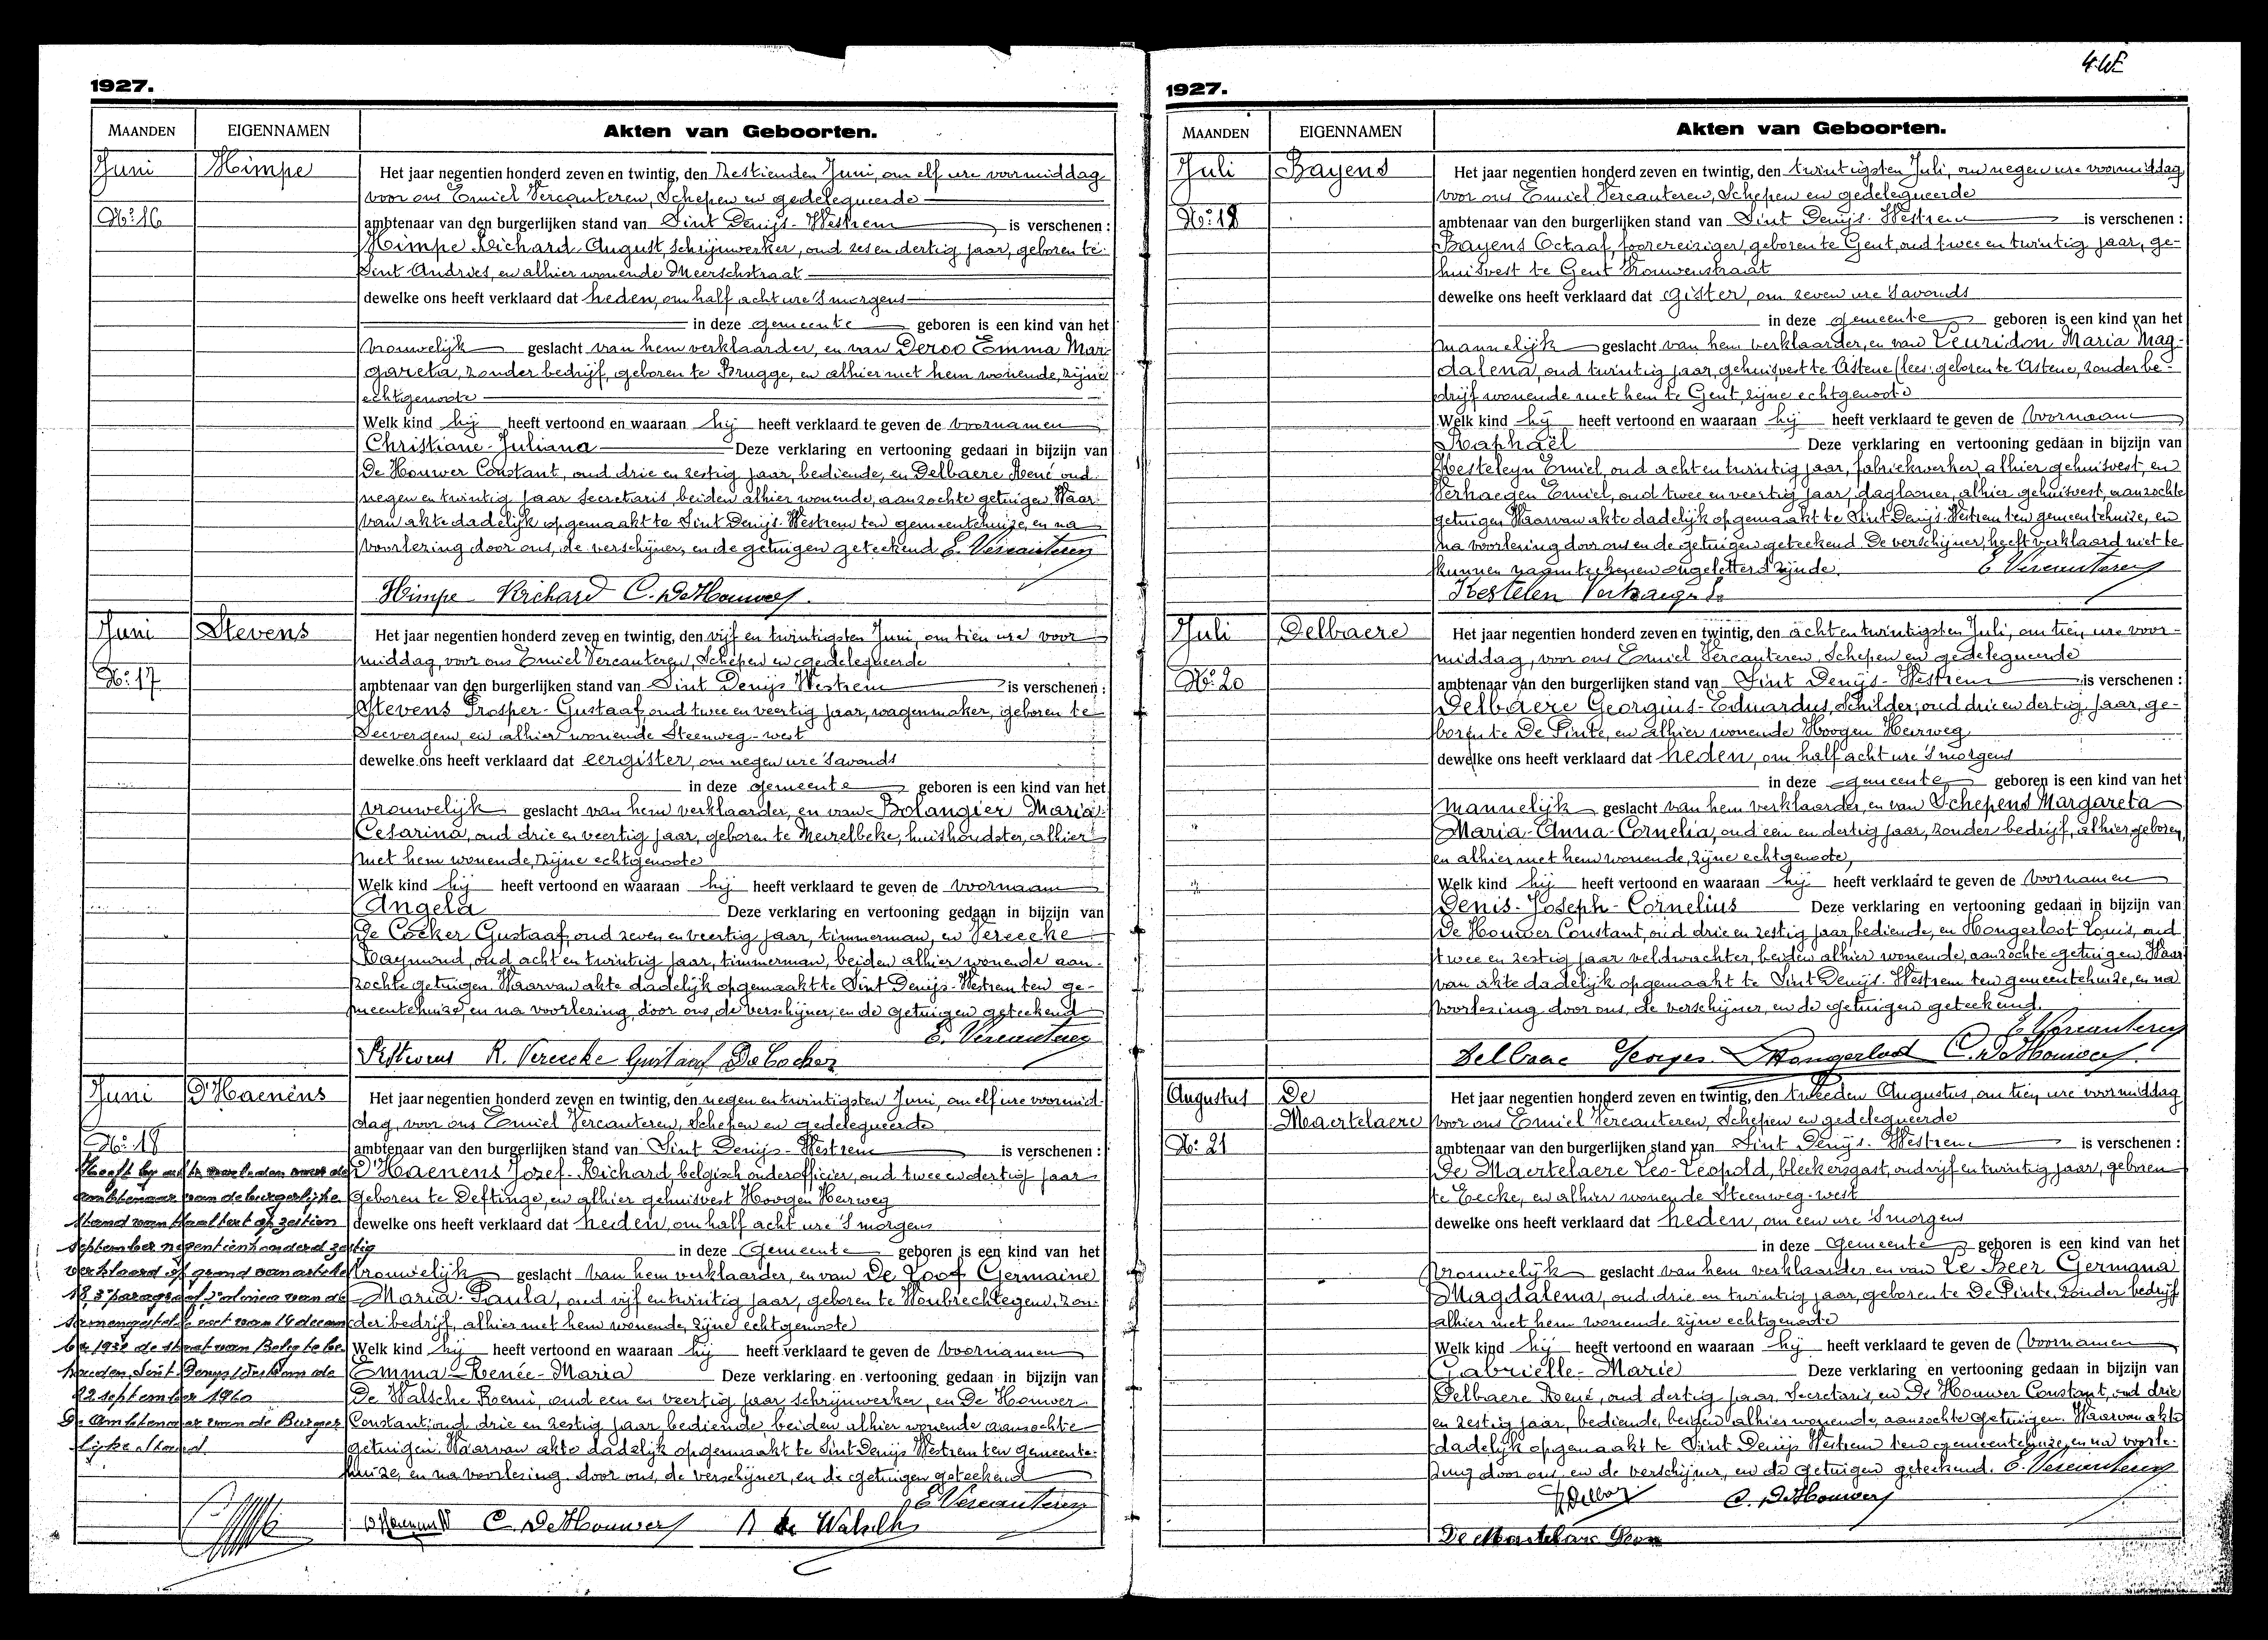 1927.
MAANDEN EIGENNAMEN Akten van Geboorten.
Juni Himpe
Nº 16
Het jaar negentien honderd zeven en twintig, den zestienden Juni, om elf ure voormiddag
voor ons Emiel Vercauteren, Schepen en gedelegueerde
ambtenaar van den burgerlijken stand van Sint Denijs-Westrem is verschenen :
Himpe Richard-August, schrijnwerker, oud zes en dertig jaar, geboren te
Sint Andries, en alhier wonende Meerschstraat
dewelke ons heeft verklaard dat heden, om half acht ure 's morgens
in deze gemeente geboren is een kind van het
vrouwelijk geslacht van hem verklaarder, en van Deroo Emma Mar-
gareta, zonder bedrijf, geboren te Brugge, en alhier met hem wonende, zijne
echtgenoote
Welk kind hij heeft vertoond en waaraan hij heeft verklaard te geven de voornamen
Christiane-Juliana Deze verklaring en vertooning gedaan in bijzijn van
De Houwer Constant, oud drie en zestig jaar, bediende, en Delbaere René oud
negen en twintig jaar secretaris, beiden alhier wonende, aanzochte getuigen Waar-
van akte dadelijk opgemaakt te Sint Denijs-Westrem ten gemeentehuize, en na
voorlezing door ons, de verschijner, en de getuigen geteekend E. Vercauteren
Himpe Richard C. De Houwer
Juni Stevens
Nº 17
Het jaar negentien honderd zeven en twintig, den vijf en twintigsten Juni, om tien ure voor
middag, voor ons Emiel Vercauteren, Schepen en gedelegueerde
ambtenaar van den burgerlijken stand van Sint Denijs Westrem is verschenen :
Stevens Prosper-Gustaaf, oud twee en veertig jaar, wagenmaker, geboren te
Seevergem, en alhier wonende Steenweg-west
dewelke ons heeft verklaard dat eergister, om negen ure 's avonds
in deze gemeente geboren is een kind van het
vrouwelijk geslacht van hem verklaarder, en van Bolangier Maria
Cesarina, oud drie en veertig jaar, geboren te Meirelbeke, huishoudster, alhier
met hem wonende, zijne echtgenoote
Welk kind hij heeft vertoond en waaraan hij heeft verklaard te geven de voornaam
Angela Deze verklaring en vertooning gedaan in bijzijn van
De Cocker Gustaaf, oud zeven en veertig jaar, timmerman, en Vereecke
Raymond, oud acht en twintig jaar, timmerman, beiden alhier wonende aan-
zochte getuigen. Waarvan akte dadelijk opgemaakt te Sint Denijs-Westrem ten ge-
meentehuize, en na voorlezing, door ons, de verschijner, en de getuigen geteekend
E. Vercauteren
P. Stevens R. Vereecke Gustaaf De Cocker
Juni D'Haenens
Nº 18
Het jaar negentien honderd zeven en twintig, den negen en twintigsten Juni, om elf ure voormid-
dag, voor ons Emiel Vercauteren, Schepen en gedelegueerde
ambtenaar van den burgerlijken stand van Sint Denijs-Westrem is verschenen :
D'Haenens Jozef-Richard, belgisch onderofficier, oud twee en dertig jaar
geboren te Deftinge, en alhier gehuisvest Hoogen Heirweg
dewelke ons heeft verklaard dat heden, om half acht ure 's morgens
in deze Gemeente geboren is een kind van het
vrouwelijk geslacht van hem verklaarder, en van De Loof Germaine
Maria-Paula, oud vijf en twintig jaar, geboren te Woubrechtegem, zon-
der bedrijf, alhier met hem wonende, zijne echtgenoote
Welk kind hij heeft vertoond en waaraan hij heeft verklaard te geven de voornamen
Emma-Renée-Maria Deze verklaring en vertooning gedaan in bijzijn van
De Walsche Remi, oud een en veertig jaar schrijnwerker, en De Houwer
Constant, oud drie en zestig jaar, bediende, beiden alhier wonende aanzochte
getuigen. Waarvan akte dadelijk opgemaakt te Sint Denijs Westrem ten gemeente-
huize, en na voorlezing, door ons, de verschijner, en de getuigen geteekend
E. Vercauteren
C. De Houwer R de Walsche
Heeft bij akte verleden voor de
ambtenaar van de burgerlijke
stand van Haaltert op zestien
september negentienhonderd zestig
verklaard op grond van artikel
18, 3º paragraaf, 2º alinea van de
samengestelde wet van 14 decem-
ber 1932 de staat van Belg te be-
houden. Sint Denijs Westrem de
22 september 1960
De Ambtenaar van de Burger
lijke Stand.
4. WE
1927.
MAANDEN EIGENNAMEN Akten van Geboorten.
Juli Bayens
Nº 19
Het jaar negentien honderd zeven en twintig, den twintigsten Juli, om negen ure voormiddag
voor ons Emiel Vercauteren, Schepen en gedelegueerde
ambtenaar van den burgerlijken stand van Sint Denijs-Westrem is verschenen :
Bayens Octaaf, foorereiziger, geboren te Gent, oud twee en twintig jaar, ge-
huisvest te Gent Vrouwenstraat
dewelke ons heeft verklaard dat gister, om zeven ure 's avonds
in deze gemeente geboren is een kind van het
mannelijk geslacht van hem verklaarder, en van Leuridon Maria Mag-
dalena, oud twintig jaar, gehuisvest te Astene (lees: geboren te Astene, zonder be-
drijf wonende met hem te Gent, zijne echtgenoote
Welk kind hij heeft vertoond en waaraan hij heeft verklaard te geven de voornaam
Raphaël Deze verklaring en vertooning gedaan in bijzijn van
Kesteleyn Emiel, oud acht en twintig jaar, fabriekwerker, alhier gehuisvest, en
Verhaegen Emiel, oud twee en veertig jaar, dagloner, alhier gehuisvest, aanzochte
getuigen Waarvan akte dadelijk opgemaakt te Sint Denijs-Westrem ten gemeentehuize, en
na voorlezing door ons en de getuigen geteekend. De verschijner, heeft verklaard niet te
kunnen naamteekenen ongeletterd zijnde. E Vercauteren
Kestelen
Juli Delbaere
Nº 20
Het jaar negentien honderd zeven en twintig, den acht en twintigsten Juli, om tien ure voor-
middag, voor ons Emiel Vercauteren, Schepen en gedelegueerde
ambtenaar van den burgerlijken stand van Sint Denijs-Westrem is verschenen :
Delbaere Georgius-Eduardus, schilder, oud drie en dertig jaar, ge-
boren te De Pinte, en alhier wonende Hoogen Heirweg
dewelke ons heeft verklaard dat heden, om half acht ure 's morgens
in deze gemeente geboren is een kind van het
mannelijk geslacht van hem verklaarder, en van Schepens Margareta
Maria-Anna-Cornelia, oud een en dertig jaar, zonder bedrijf, alhier geboren,
en alhier met hem wonende, zijne echtgenoote,
Welk kind hij heeft vertoond en waaraan hij heeft verklaard te geven de voornamen
Denis-Joseph-Cornelius Deze verklaring en vertooning gedaan in bijzijn van
De Houwer Constant, oud drie en zestig jaar, bediende, en Hongerloot Louis, oud
twee en zestig jaar veldwachter, beiden alhier wonende, aanzochte getuigen, Waar-
van akte dadelijk opgemaakt te Sint Denijs-Westrem ten gemeentehuize, en na
voorlezing door ons, de verschijner, en de getuigen geteekend.
E Vercauteren
Delbaere Georges L Hongerloot C. De Houwer
Augustus De Maertelaere
Nº 21
Het jaar negentien honderd zeven en twintig, den tweeden Augustus, om tien ure voormiddag
voor ons Emiel Vercauteren, Schepen en gedelegueerde
ambtenaar van den burgerlijken stand van Sint Denijs-Westrem is verschenen :
De Maertelaere Leo-Leopold, bleekersgast, oud vijf en twintig jaar, geboren
te Eecke, en alhier wonende Steenweg-west
dewelke ons heeft verklaard dat heden, om een ure 's morgens
in deze Gemeente geboren is een kind van het
vrouwelijk geslacht van hem verklaarder, en van De Beer Germana
Magdalena, oud drie en twintig jaar, geboren te De Pinte, zonder bedrijf
alhier met hem wonende zijne echtgenoote
Welk kind hij heeft vertoond en waaraan hij heeft verklaard te geven de voornamen
Gabrielle-Marie Deze verklaring en vertooning gedaan in bijzijn van
Delbaere René, oud dertig jaar, Secretaris, en De Houwer Constant, oud drie
en zestig jaar, bediende, beiden alhier wonende, aanzochte getuigen. Waarvan akte
dadelijk opgemaakt te Sint Denijs Westrem ten gemeentehuize, en na voorle-
zing door ons, en de verschijner, en de getuigen geteekend. E. Vercauteren
C. De Houwer
De Maertelaere Leon